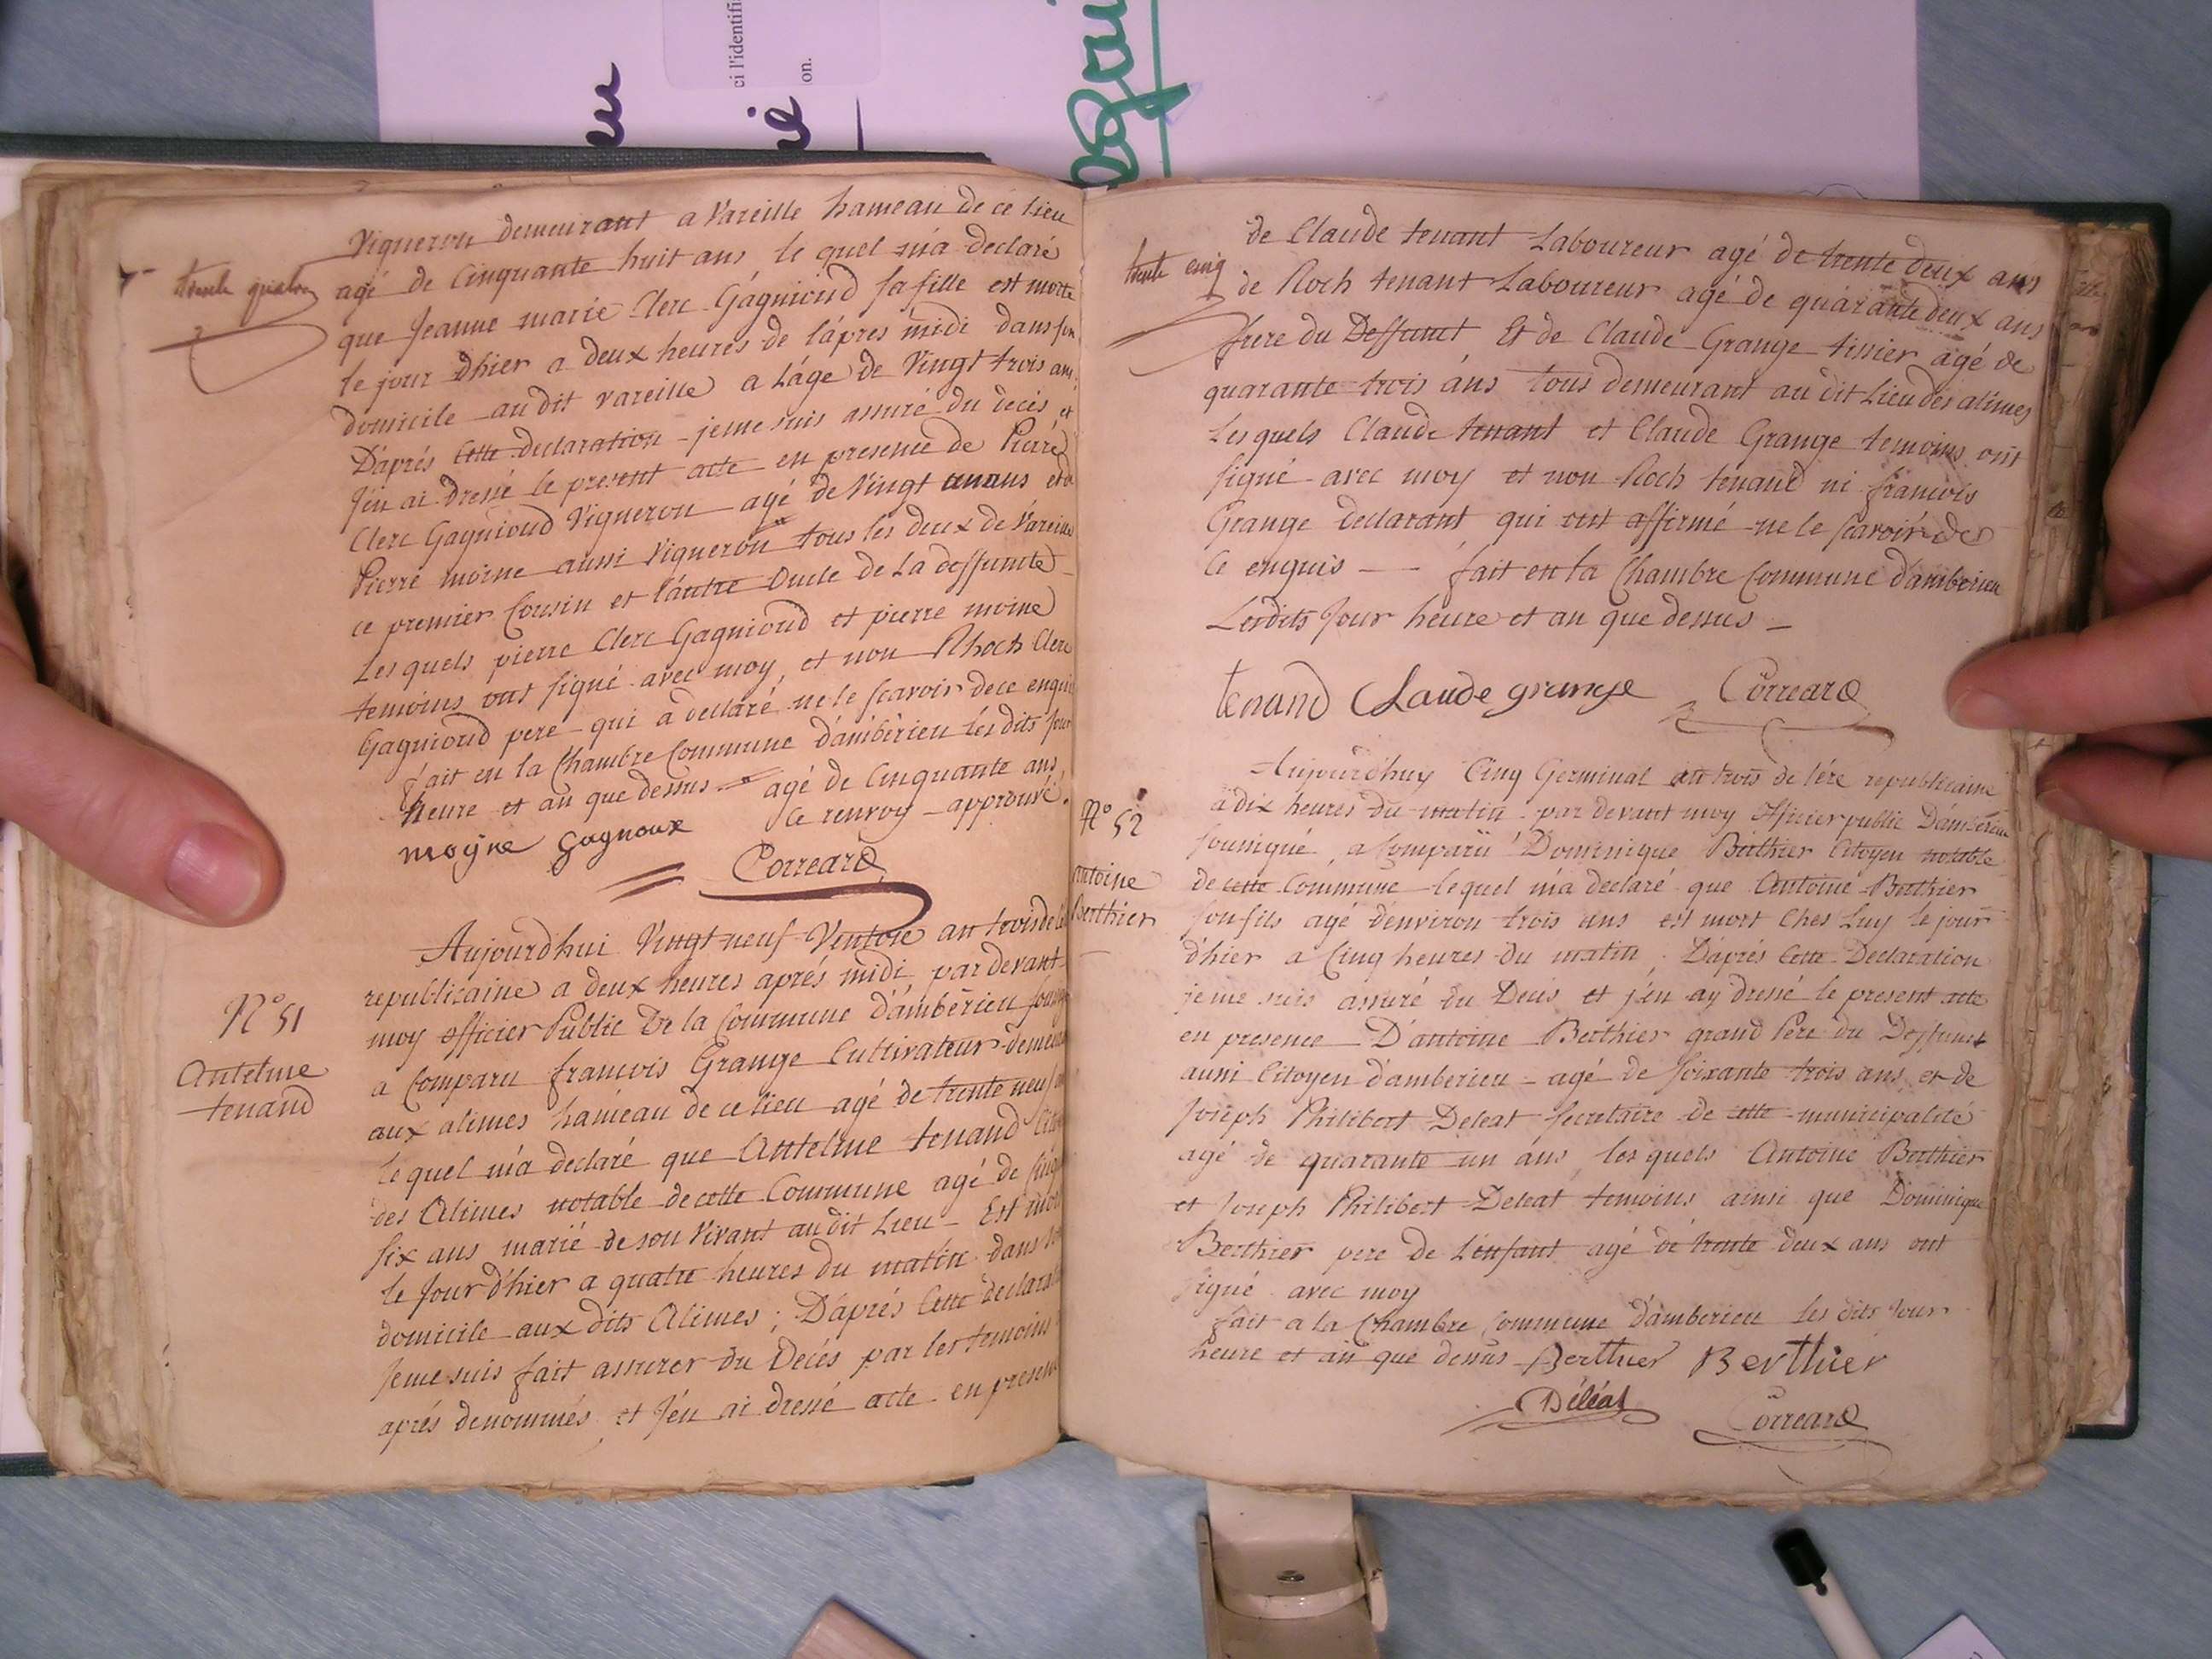 ci l'identifi
on.
trente quatre
Vigneron demeurant a Vareille hameau de ce lieu
agé de Cinquante huit ans le quel m'a declaré
que Jeanne marie Clerc Gagnioud sa fille est morte
le jour d'hier a deux heures de l'apres midi dans son
domicile au dit vareille a l'age de Vingt trois ans;
D'aprés Cette declaration je me suis assuré du decés et
J'en ai dressé le present acte en presence de Pierre
Clerc Gagnioud Vigneron agé de Vingt
Pierre moine aussi Vigneron tous les deux de Vareille
ce premier Cousin et l'autre Oncle de La deffunte
Les quels pierre Clerc Gagnioud et pierre moine
temoins ont signé avec moy, et non Rhoch Clerc
Gagnioud pere qui a declaré ne le scavoir de ce enquis
fait en la Chambre Commune d'ambérieu les dits jour
heure et an que dessus = agé de Cinquante ans
Ce renvoy approuvé.
moyne gagnoux
Correard
N° 51
Antelme
tenand
Aujourd'hui Vingt neuf Ventose an trois de l'ere
republicaine a deux heures aprés midi, par devant
moy officier Public de la Commune d'ambérieu
a Comparu francois Grange Cultivateur
aux alimes hameau de ce lieu agé de trente neuf
le quel m'a declaré que Antelme tenand
des Alimes notable de cette Commune agé de
six ans marié de son Vivant au dit Lieu Est
le Jour d'hier a quatre heures du matin dans
domicile aux dits Alimes; D'aprés Cette
Je me suis fait assurer du Decés par les temoins
aprés denommés et J'en ai dressé acte en
trente cinq
de Claude tenant Laboureur agé de trente deux ans
de Roch tenant Laboureur agé de quarante deux ans
frere du Deffunct Et de Claude Grange tissier agé de
quarante trois ans tous demeurant au dit Lieu des alimes
Les quels Claude tenant et Claude Grange temoins ont
signé avec moy et non Roch tenand ni francois
Grange declarant qui ont affirmé ne le scavoir de
Ce enquis -- fait en la Chambre Commune d'amberieu
Les dits Jour heure et an que dessus
tenand Claude grange Correard
N° 52
antoine
Berthier
Aujourd'huy Cinq Germinal an trois de l'ére republicaine
a dix heures du matin par devant moy Officier public D'amberieu
soussigné, a Comparu Dominique Berthier Citoyen notable
de cette Commune lequel m'a declaré que Antoine Berthier
son fils agé d'environ trois ans est mort Ches Luy le jour
d'hier a Cinq heures du matin; D'aprés Cette Declaration
je me suis assuré du Decés et j'en ay dressé le present acte
en presence D'antoine Berthier grand Pere du Deffunct
aussi Citoyen d'amberieu agé de soixante trois ans, et de
Joseph Philibert Deleat Secretaire de cette municipalité
agé de quarante un ans, les quels Antoine Berthier
et Joseph Philibert Deleat temoins ainsi que Dominique
Berthier pere de l'enfant agé de trente deux ans ont
signé avec moy
fait a la Chambre Commune d'amberieu les dits Jour
heure et an que dessus Berthier Berthier
Déléat Correard